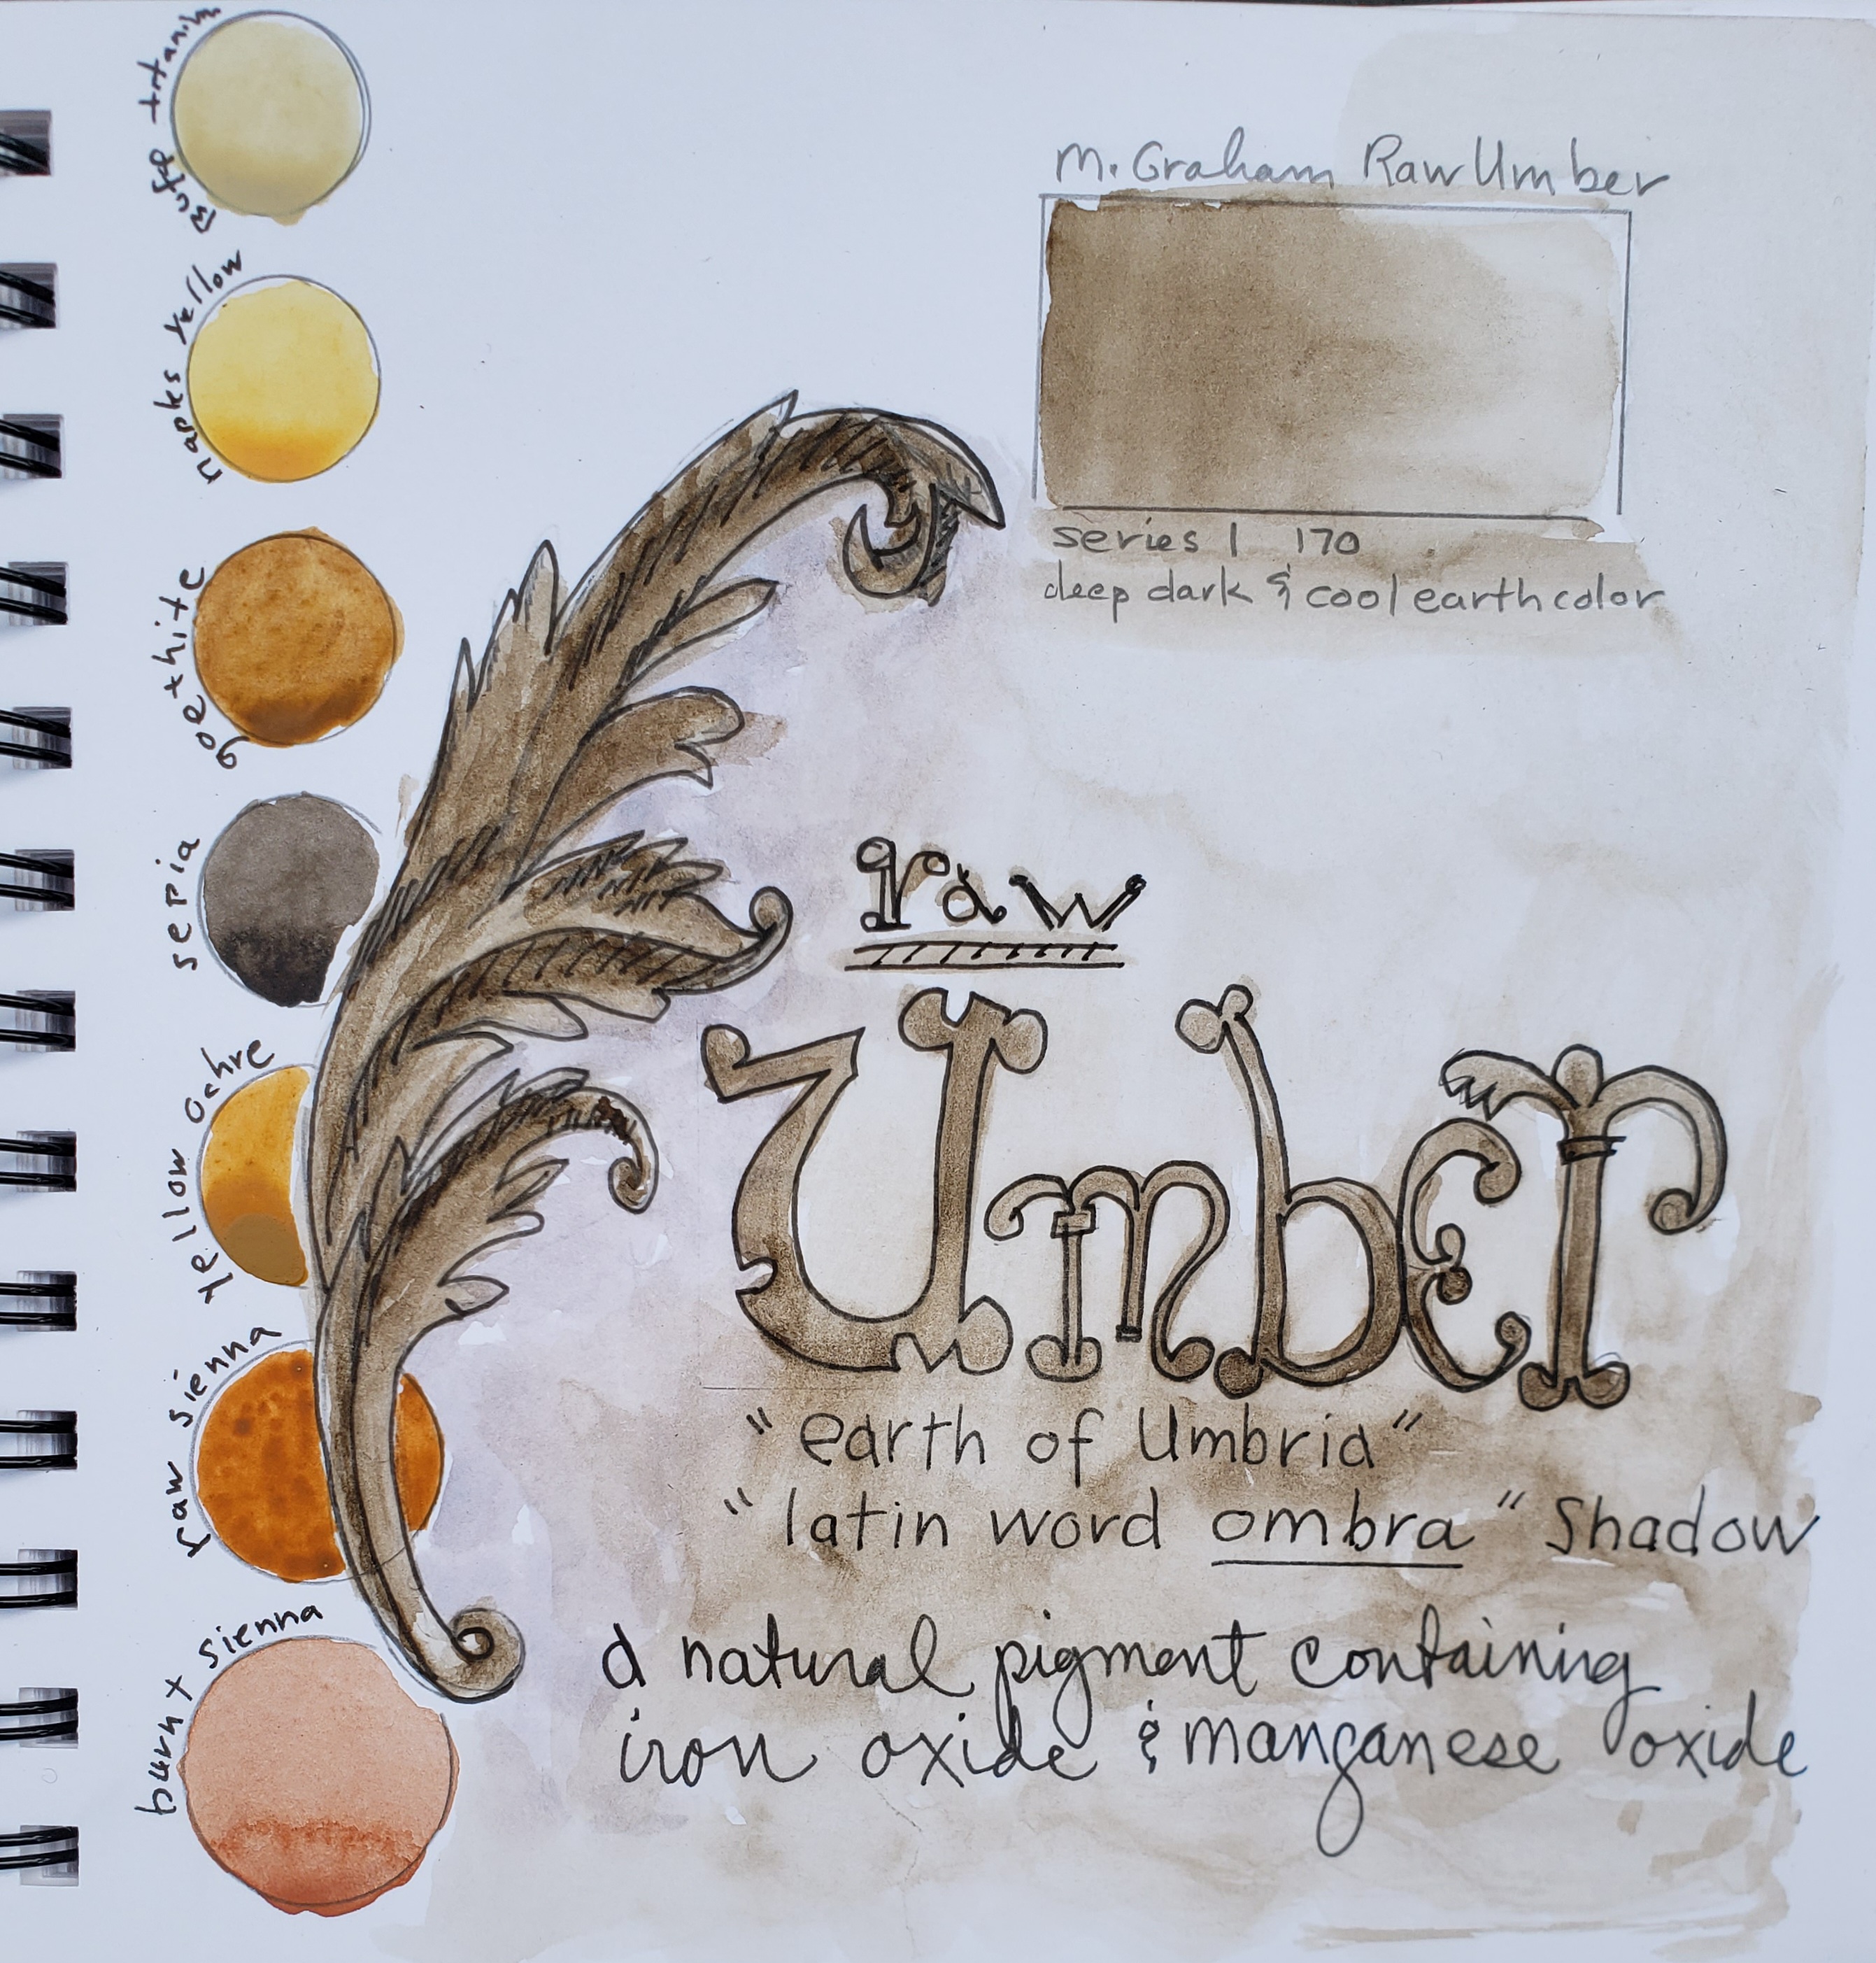 Buff titanim
naples yellow
goethite
sepia
yellow ochre
raw sienna
burnt sienna
M. Graham Raw Umber
series 1 170
deep dark & cool earth color
raw
Umber
"earth of Umbria"
"latin word ombra" shadow
a natural pigment containing
iron oxide & manganese oxide